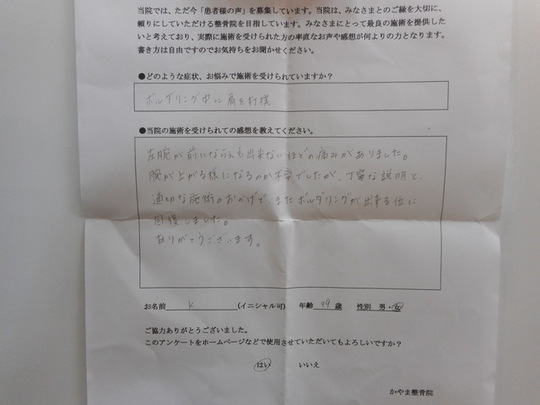 当院では、ただ今「患者様の声」を募集しています。当院は、みなさまとのご縁を大切に、
頼りにしていただける整骨院を目指しています。みなさまにとって最良の施術を提供した
いと考えており、実際に施術を受けられた方の率直なお声や感想が何よりの力となります。
書き方は自由ですのでお気持ちをお聞かせください。
●どのような症状、お悩みで施術を受けられていますか?
ボルダリング中に肩を打撲
●当院の施術を受けられての感想を教えてください。
左腕が前にならえも出来ないほどの痛みがありました。
腕が上がる様になるのか不安でしたが、丁寧な説明と、
適切な施術のおかげで、またボルダリングが出来る位に
回復しました。
ありがとうございます。
お名前 K (イニシャル可) 年齢 29 歳 性別 男・女
ご協力ありがとうございました。
このアンケートをホームページなどで使用させていただいてもよろしいですか?
はい いいえ
かやま整骨院